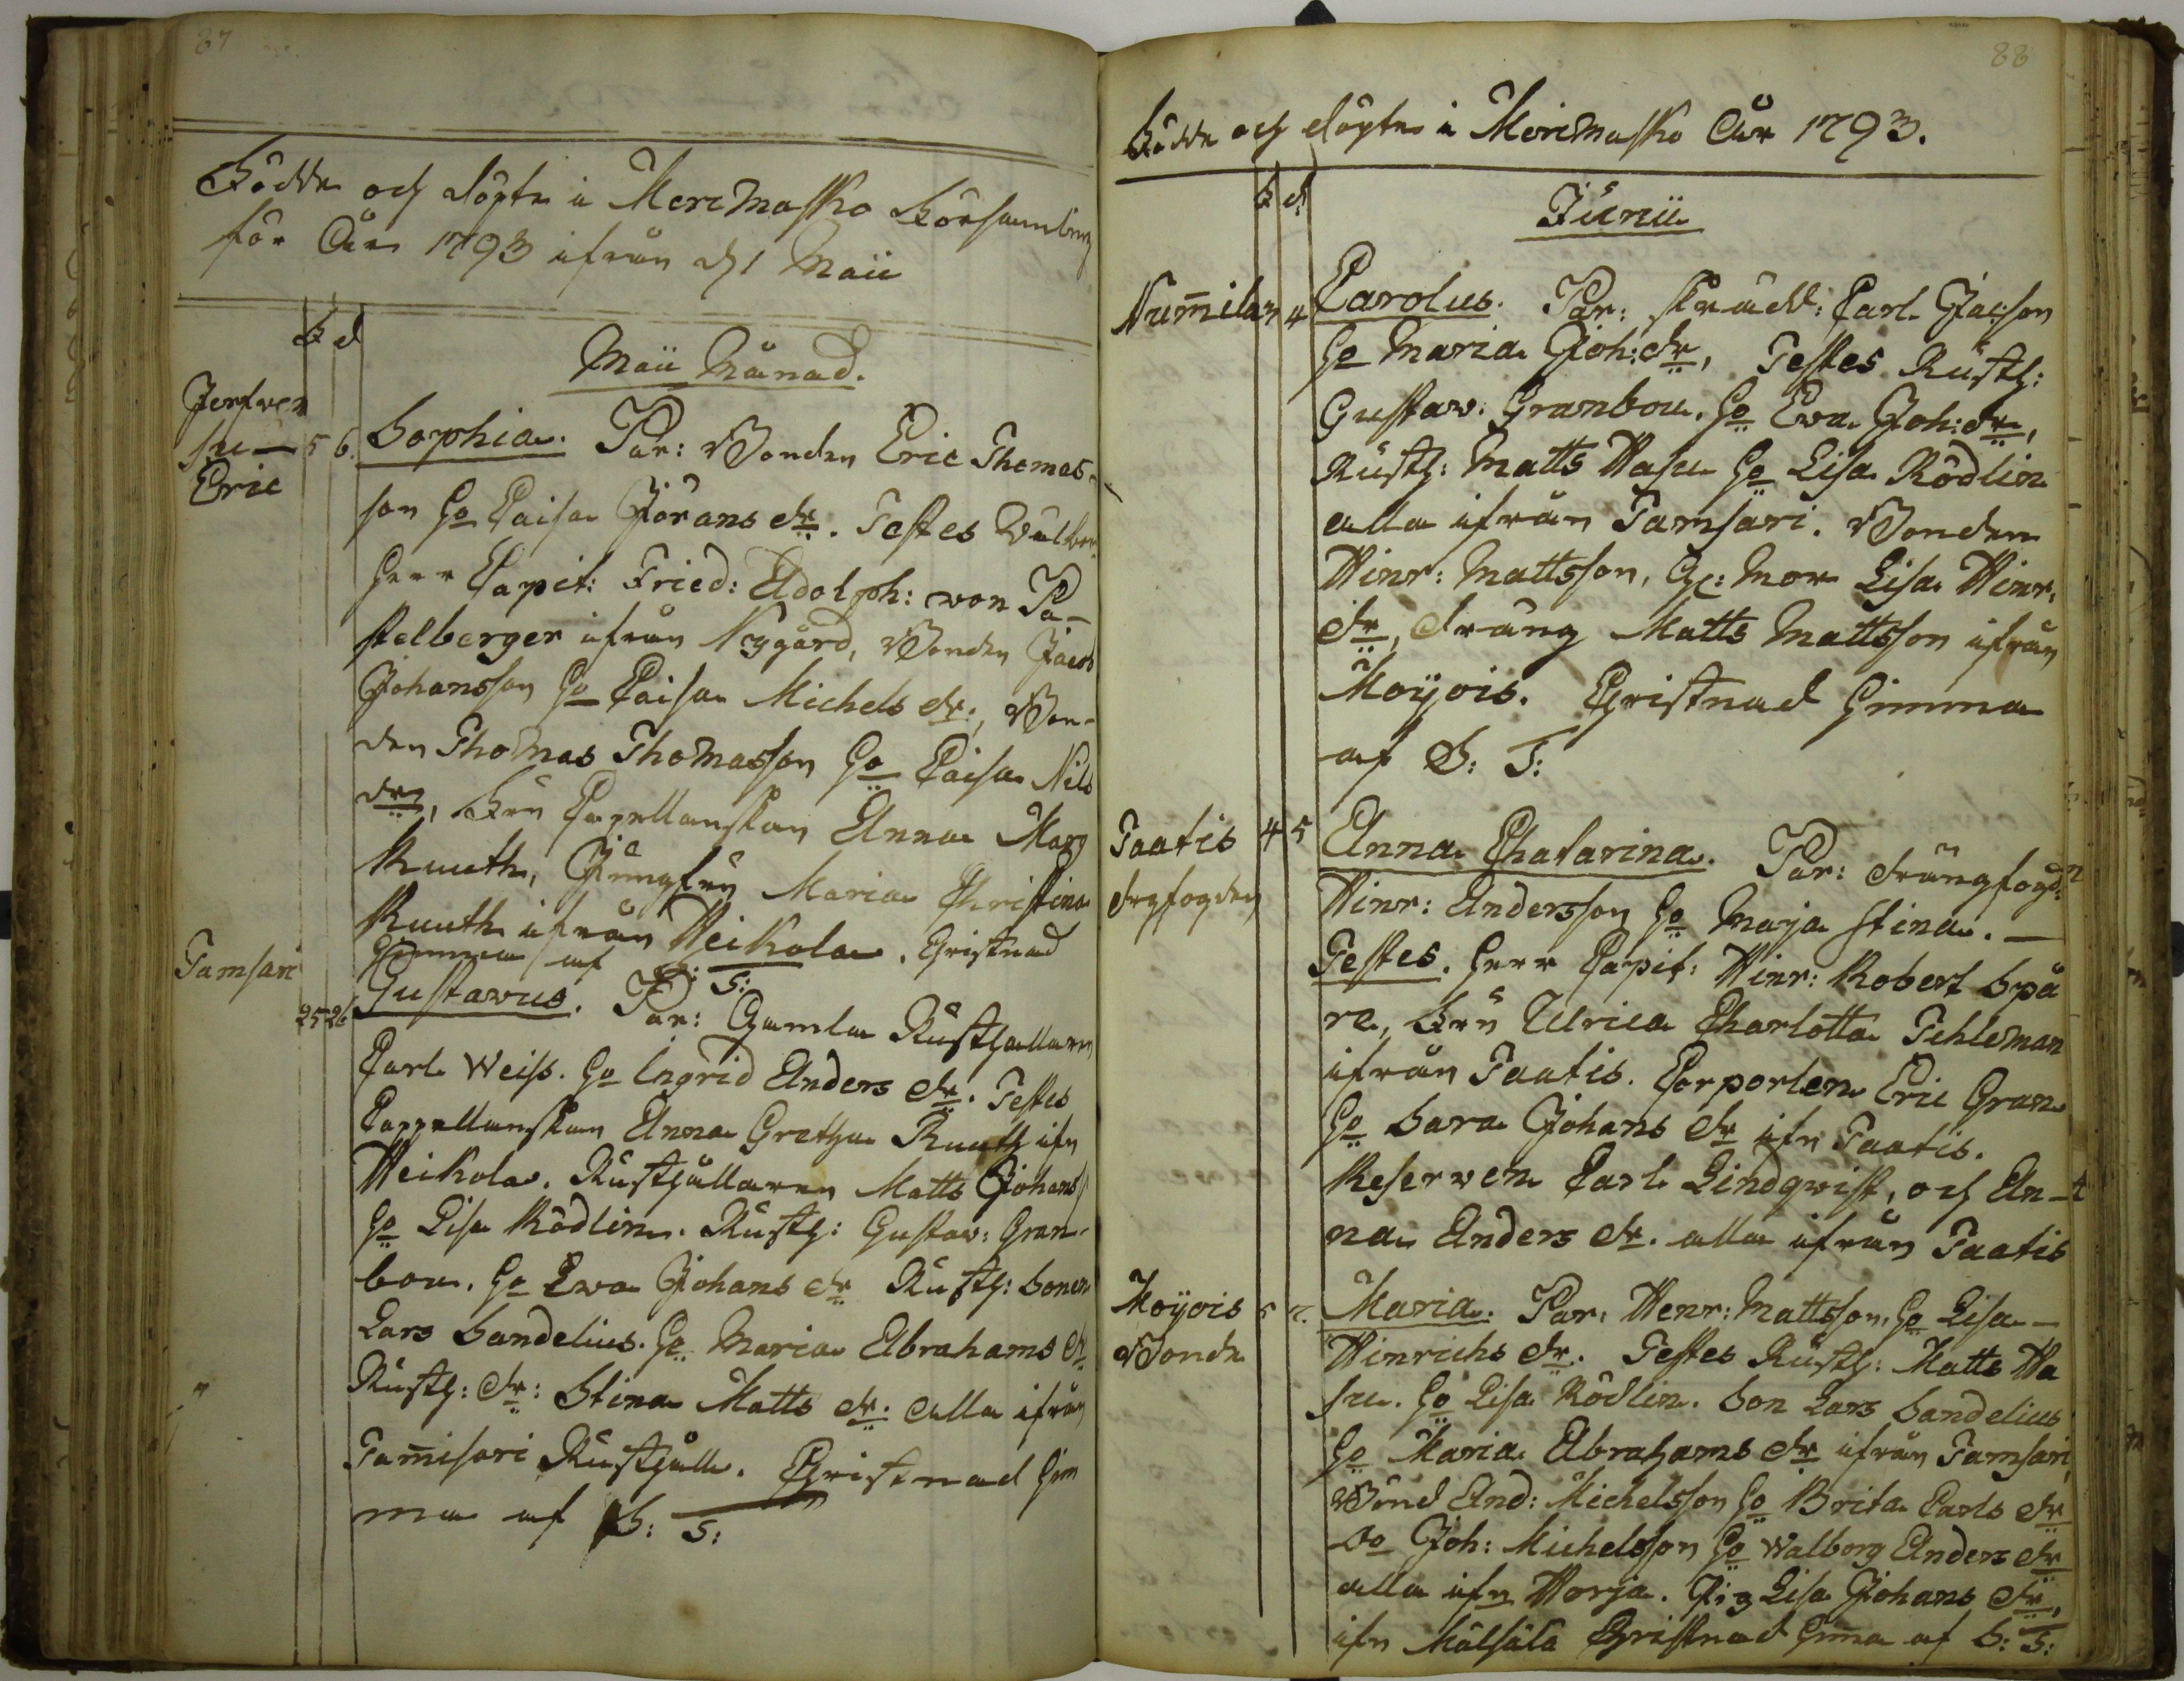 87
Födde och döpte i Merimasko Församling
för Året 1793 ifrån d 1 Maii
F d
Maii Månad.
Jerfven
su — 5 6. Sophia. Par: Bonden Eric Thomas-
Eric
son Ho Caisa Jörans dr. Testes Wälbne
Herr Capit: Fried: Adolph: von Pa-
stelberger ifrån Nygård, Bonden Jacob
Johansson Ho Caisa Michels dr, Bon-
den Thomas Thomasson Ho Caisa Nils
dr, Fru Capellanskan Anna Marg
Ruuth, Jungfru Maria Christina
Ruuth ifrån Heikola. Cristnad
hemma af S: S:
Tamsari
25 26 Gustavus. Par: Gamla Rusthållaren
Carl Weiss. Ho Ingrid Anders dr. Testes
Cappellanskan Anna Gretha Ruuth ifn
Heikola. Rusthållaren Matts Johans
Ho Lisa Rödlin. Rusth: Gustav: Gran-
bou. Ho Ewa Johans dr Rusth: Sonen
Lars Sandelius. Ho Maria Abrahams dr
Rusth: dr: Stina Matts dr. alla ifrån
Tamisari Rusthåll. Christnad hem
ma af S: S:
88
Födde och döpte i Merimasko År 1793.
F d
Junii
Numila 3 4 Carolus. Par: Skrädd: Carl Jacson
Ho Maria Joh: dr, Testes Rusth:
Gustav: Granbou. Ho Eva Joh: dr,
Rusth: Matts Hasu Ho Lisa Rödlin
alla ifrån Tamsari. Bonden
Hinr: Mattsson, Gl: Mor Lisa Hinr:
dr, dräng Matts Mattsson ifrån
Moÿois. Christnad hemma
af S: S:
Taatis 4 5 Anna Chatarina. Par: drängfogd:
drgfogden Hinr: Andersson Ho Maja Stina. —
Testes. Herr Capit: Hinr: Robert Spå
re, Fru Ulrica Charlotta Tehleman
ifrån Taatis. Corporlen Eric Gran
Ho Sara Johans dr ifn Taatis.
Reserven Carl Lindqvist, och An-
na Anders dr. alla ifrån Taatis
Moÿois 5 7. Maria. Par: Henr: Mattsson, Ho Lisa —
Bonde Hinrichs dr. Testes Rusth: Matts Ha
su. Ho Lisa Rödlin. Son Lars Sandelius
Ho Maria Abrahams dr ifrån Tamsari,
Bond And: Michelsson Ho Brita Carls dr
do Joh: Michelsson Ho Walborg Anders dr
alla ifn Horja. Pig Lisa Johans dr,
ifn Målsälä Christnad hemma af S: S: